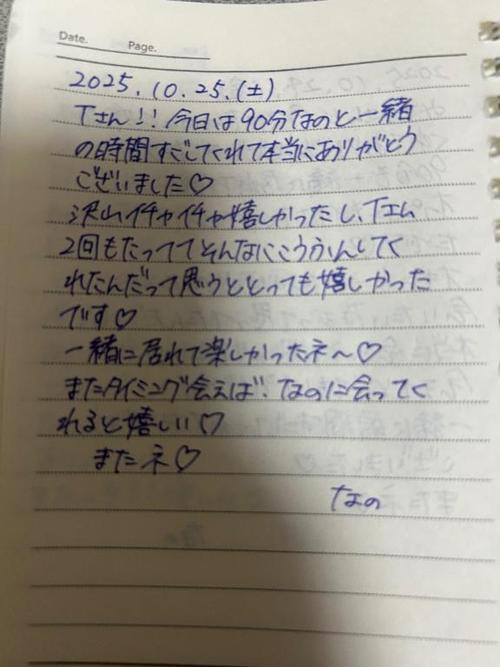 Date.
Page.
2025.10.25.(土)
Tさん!! 今日は90分なのと一緒
の時間すごしてくれて本当にありがとう
ございました♡
沢山イチャイチャ嬉しかったし、Tさん
2回もたっててそんなにこうふんしてく
れたんだって思うととっても嬉しかった
です♡
一緒に居れて楽しかったネ〜♡
またタイミング会えば、なのに会ってく
れると嬉しい♡
またネ♡
なの